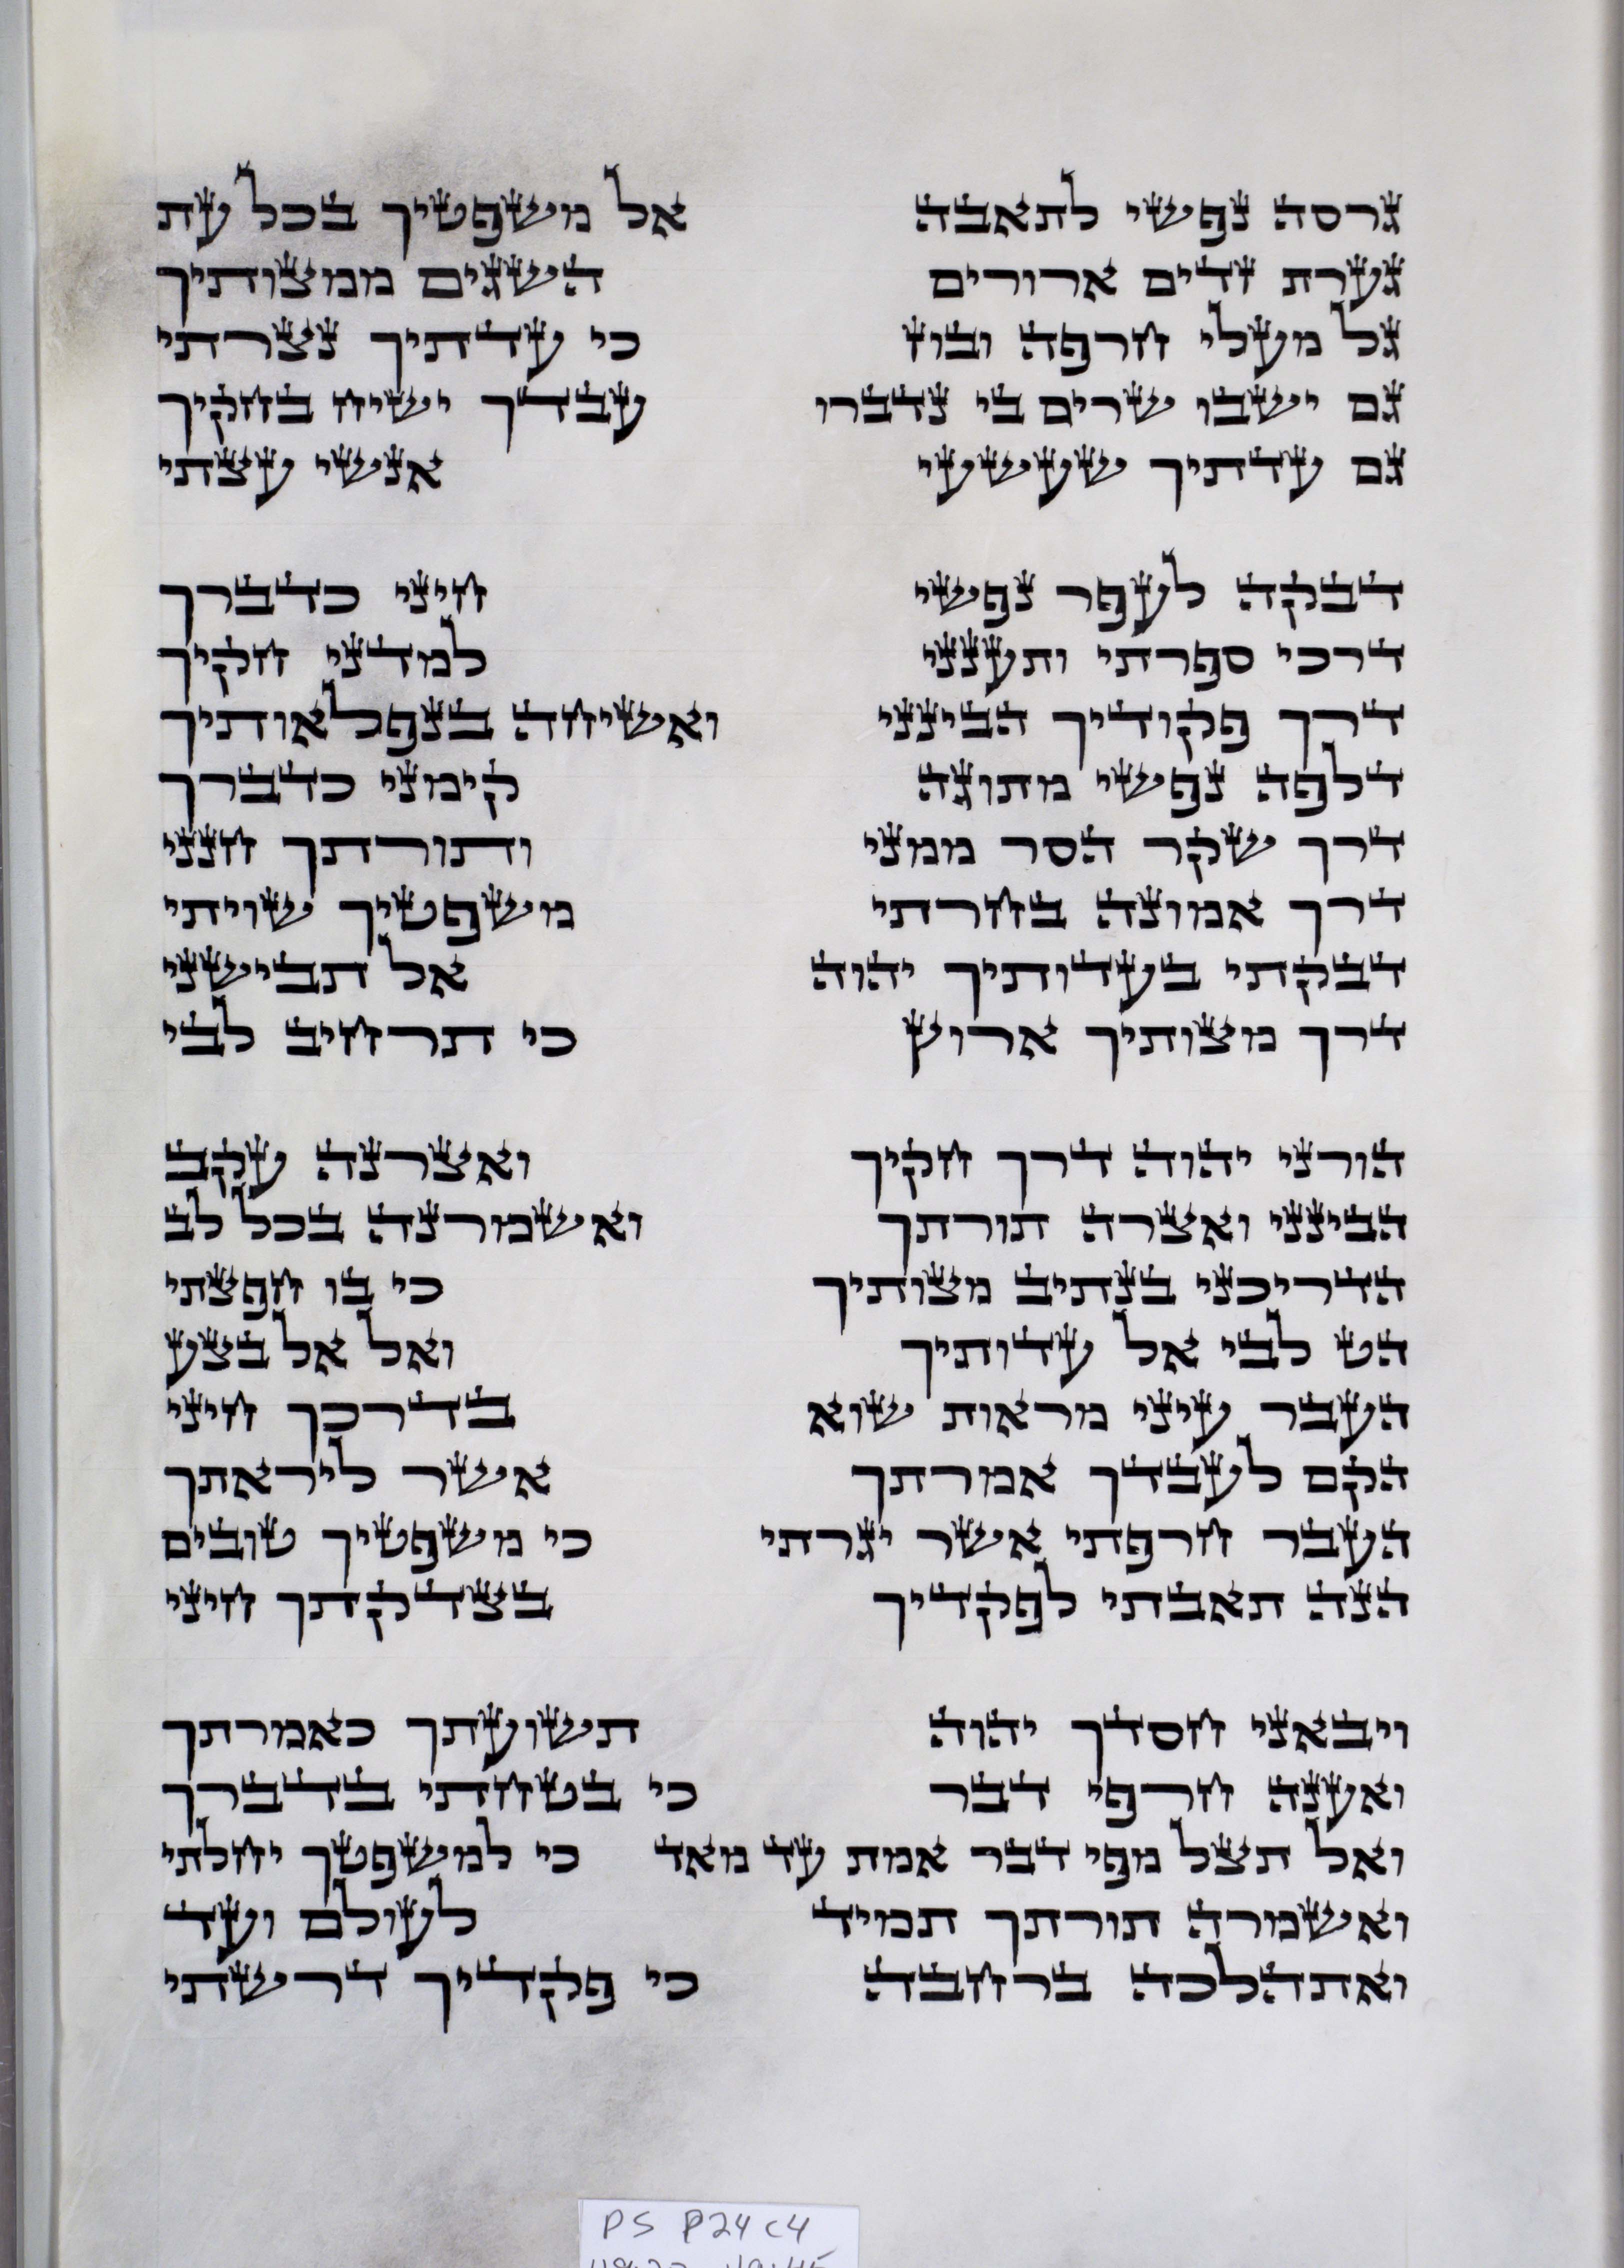 גרסה נפשי לתאבה אל משפטיך בכל עת
גערת זדים ארורים השגים ממצותיך
גל מעלי חרפה ובוז כי עדתיך נצרתי
גם ישבו שרים בי נדברו עבדך ישיח בחקיך
גם עדתיך שעשעי אנשי עצתי
דבקה לעפר נפשי חיני כדברך
דרכי ספרתי ותענני למדני חקיך
דרך פקודיך הבינני ואשיחה בנפלאותיך
דלפה נפשי מתוגה קימני כדברך
דרך שקר הסר ממני ותורתך חנני
דרך אמונה בחרתי משפטיך שויתי
דבקתי בעדותיך יהוה אל תבישני
דרך מצותיך ארוץ כי תרחיב לבי
הורני יהוה דרך חקיך ואצרנה עקב
הבינני ואצרה תורתך ואשמרנה בכל לב
הדריכני בנתיב מצותיך כי בו חפצתי
הט לבי אל עדותיך ואל אל בצע
העבר עיני מראות שוא בדרכך חיני
הקם לעבדך אמרתך אשר ליראתך
העבר חרפתי אשר יגרתי כי משפטיך טובים
הנה תאבתי לפקדיך בצדקתך חיני
ויבאני חסדך יהוה תשועתך כאמרתך
ואענה חרפי דבר כי בטחתי בדברך
ואל תצל מפי דבר אמת עד מאד כי למשפטך יחלתי
ואשמרה תורתך תמיד לעולם ועד
ואתהלכה ברחבה כי פקדיך דרשתי
PS P24 C4